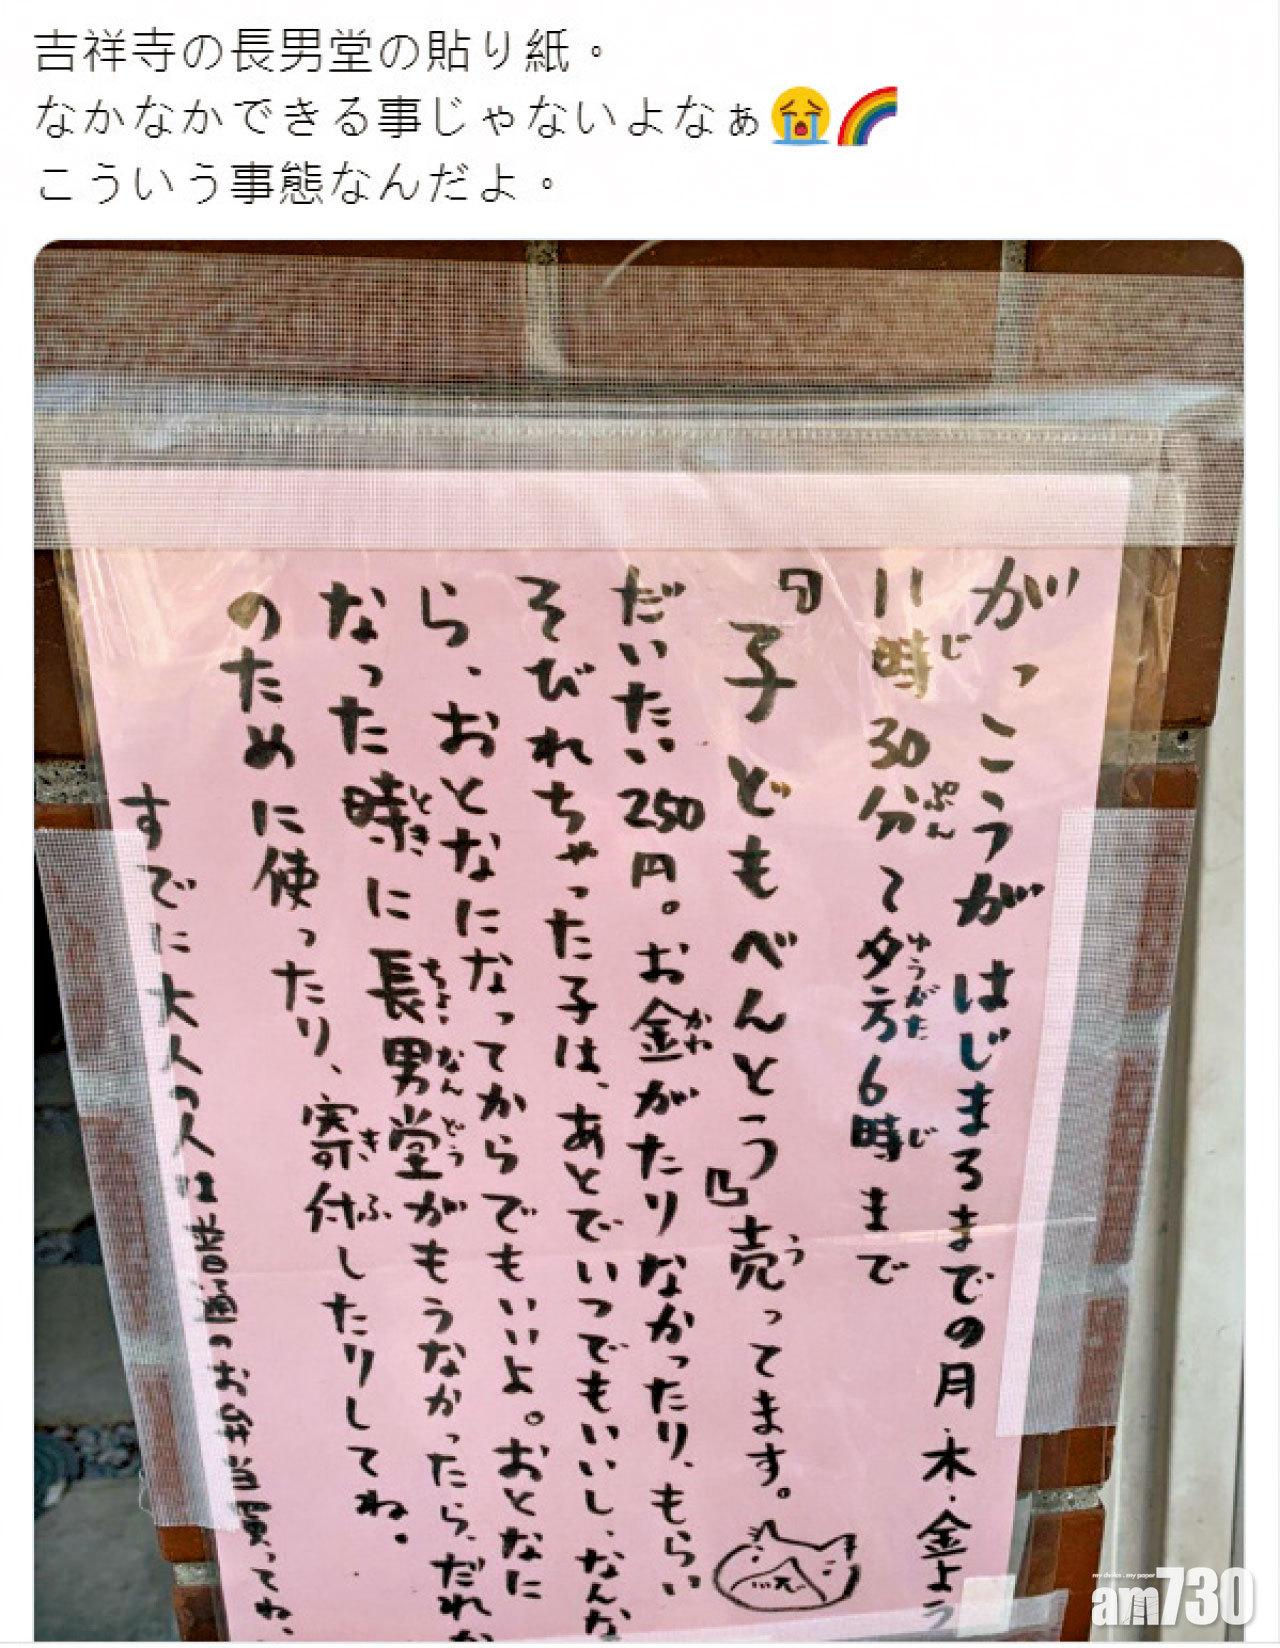 吉祥寺の長男堂の貼り紙。
なかなかできる事じゃないよなぁ😭🌈
こういう事態なんだよ。
がっこうがはじまるまでの月・木・金よう
11時30分〜夕方6時まで
『子どもべんとう』売ってます。
だいたい250円。お金がたりなかったり、もらい
そびれちゃった子は、あとでいつでもいいし、なんな
ら、おとなになってからでもいいよ。おとなに
なった時に長男堂がもうなかったら、だれか
のために使ったり、寄付したりしてね。
すでに大人の人は普通のお弁当買ってね。
my choice . my paper
am730